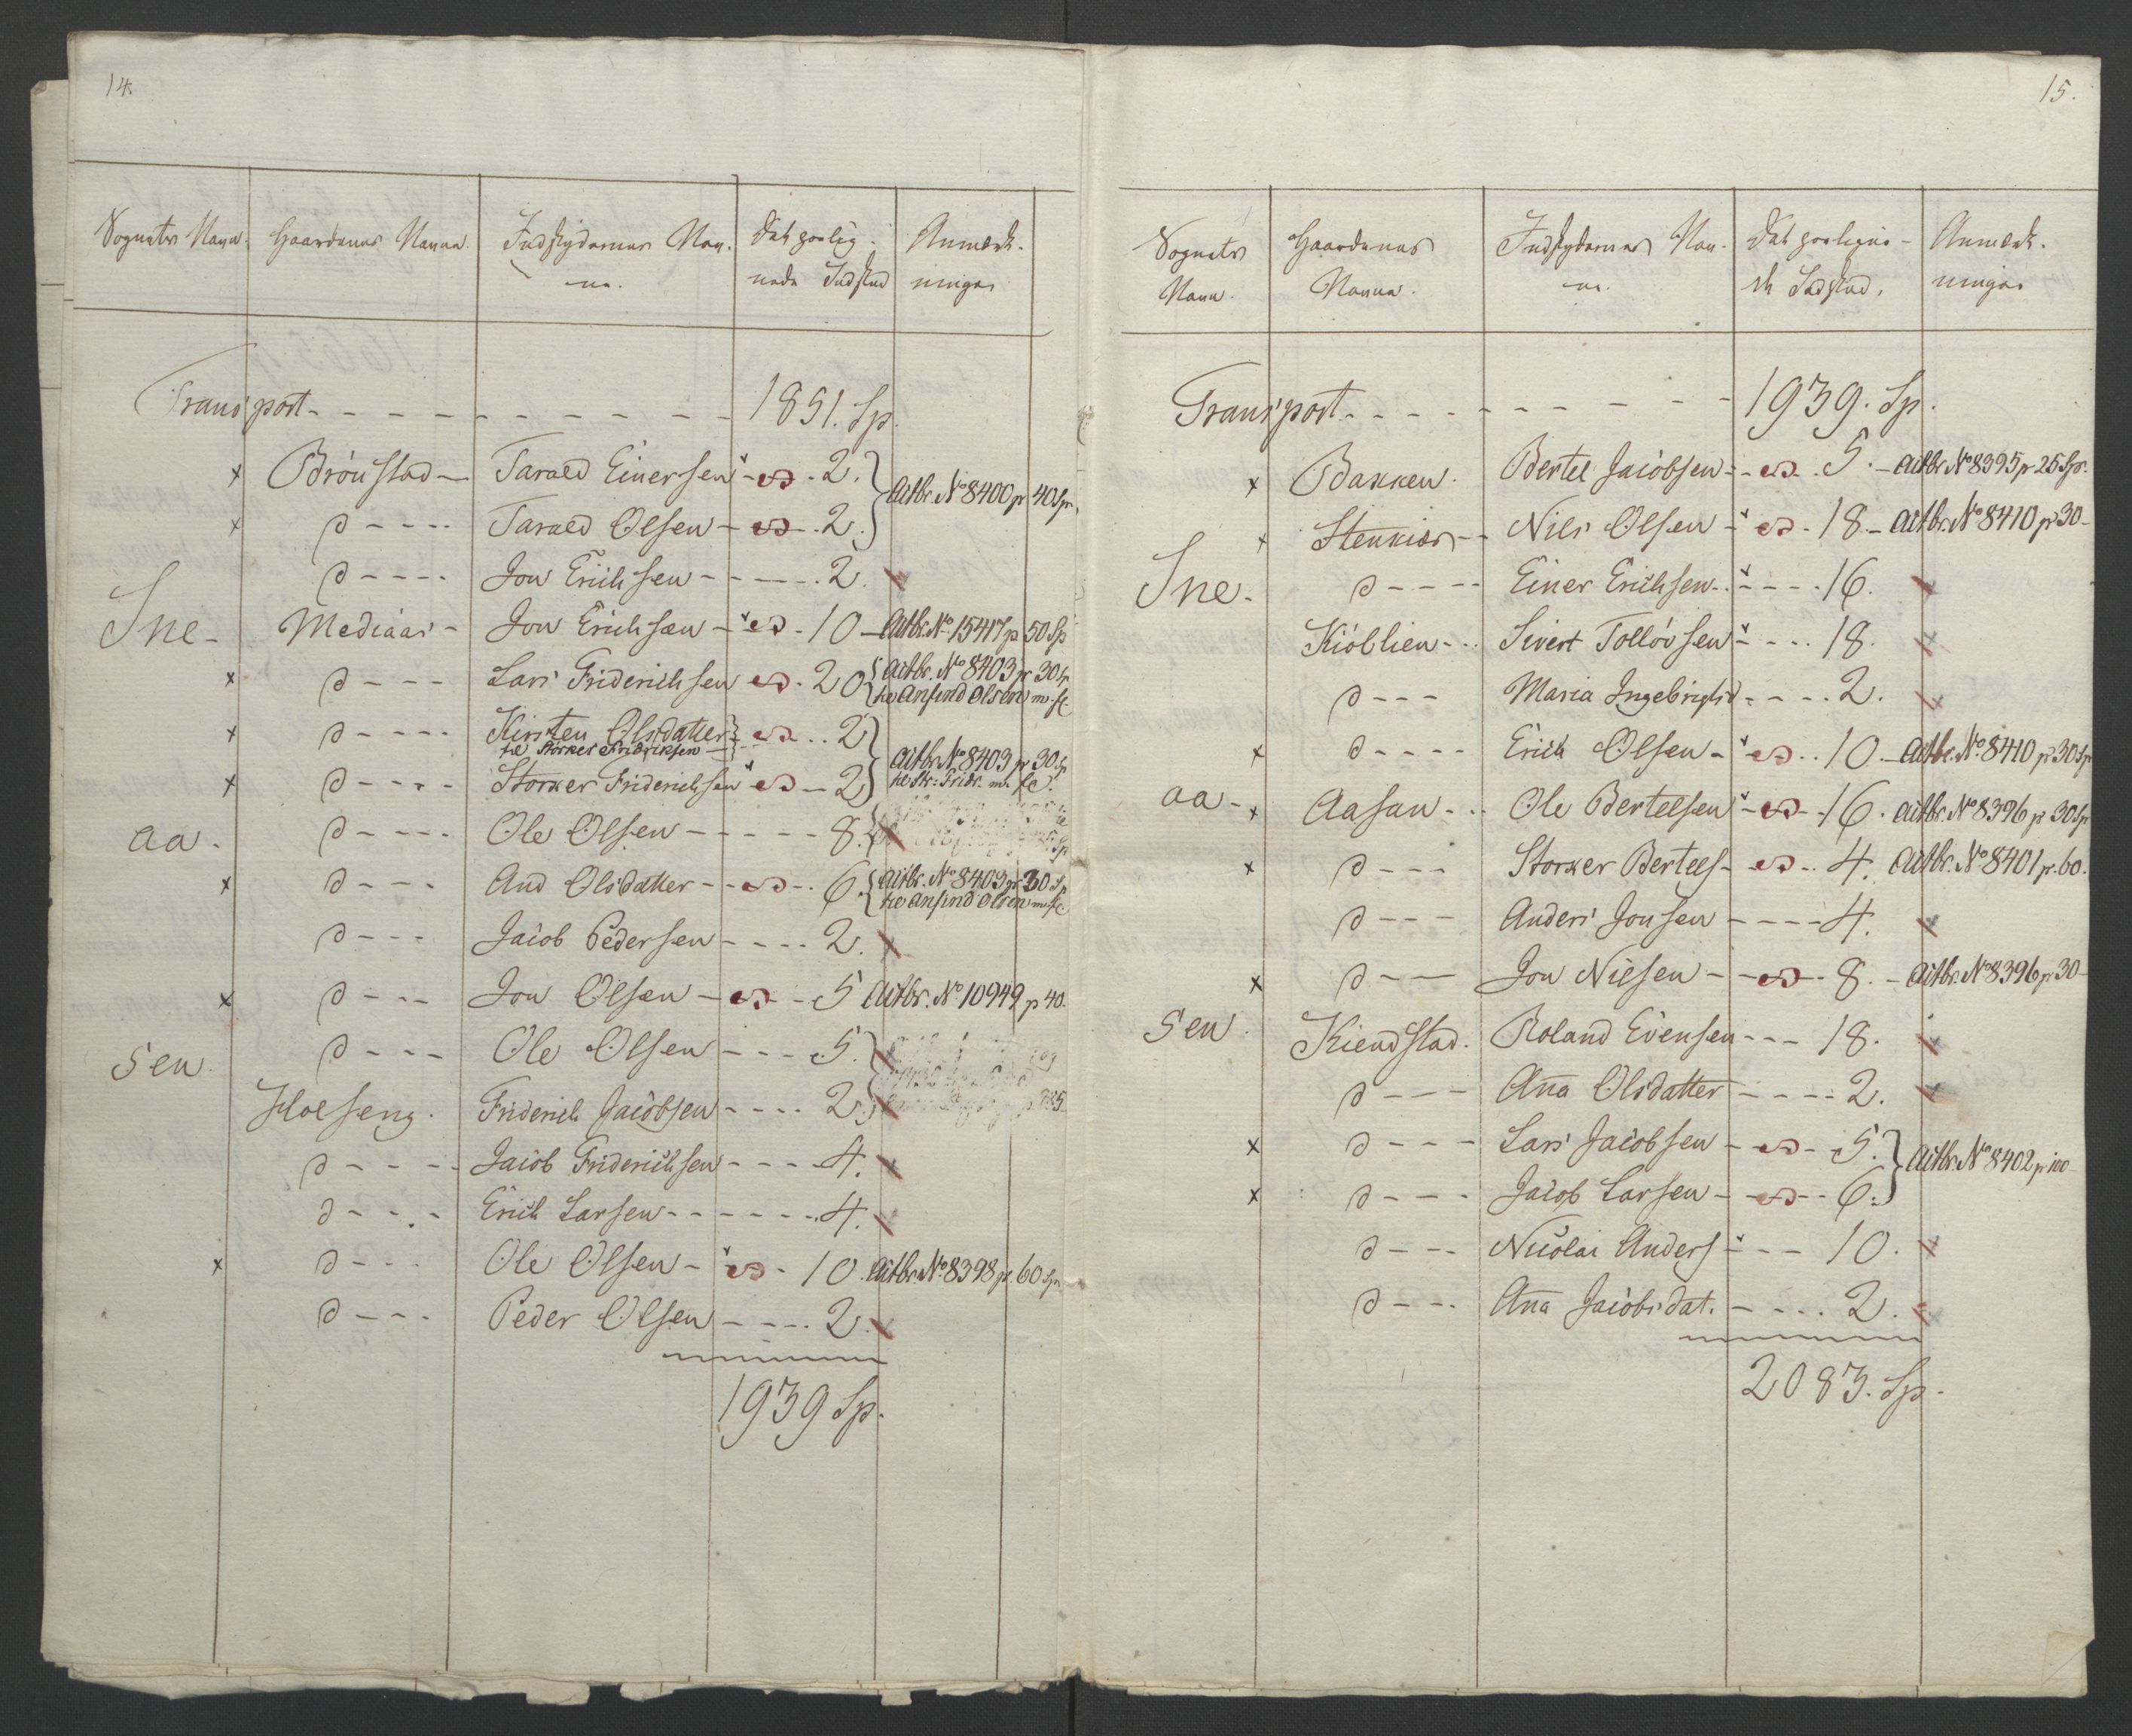 14.
Sognets Navn. Gaardenes Navne. Indskyderens Nav- Det paalig- Anmærk-
ne. nede Indskud ninger
Transport - - - - - - - - - - 1851. Sp.
x Brönstad - Tarald Einersen - 2. } Actbr. No 8400 pr 40 Sp.
x d - - - - Tarald Olsen - 2. }
d - - - - Jon Erichsen - - - - - 2.
Sne - Mediaas - Jon Erichsen - 10 - Actbr. No 15417 p 50 Sp
x d - - - Lars Friderichsen 20 { Actbr. No 8403 pr 30 Sp
ne Ansind Olsen m. fl.
x d - - - - Kirsten Olsdatter } - - 2 }
ne Storker Fridriksen - Actbr No 8403 pr 30 Sp
x d - - - - Storker Friderichsen - 2 } ne Stk: Fridr. m. fl.
aa. d - - - - Ole Olsen - - - - - 8.
x d - - - And Olsdatter - - 6. { Actbr. No 8403 pr 30 Sp
ne Ansind Olsen m. fl
d - - - Jacob Pedersen - - - - 2.
x d - - - Jon Olsen - - - 5 Actbr. No 10949 p 40.
Sen. d - - - - Ole Olsen - - - 5. }
Hoeseng. Friderich Jacobsen - - - - 2. }
d - - - - Jacob Friderichsen - - - - 4.
d - - - - Erich Larsen - - - - - - 4.
x d - - - Ole Olsen - - 10. Actbr. No 8398 p. 60 Sp.
d - - - - Peder Olsen - - - - 2.
1939 Sp.
15.
Sognets Gaardenes Indskydernes Nav- Det paaligne- Anmærk-
Navn. Navne. ne. de Indskud. ninger
Transport - - - - - - - - - - 1939. Sp.
x Bakken. Bertel Jacobsen - - 5. - Actbr. No 8395 p 25 Sp.
x Stenkiær - - Nils Olsen - - 18. - Actbr. No 8410 p 30 -
Sne - d - - - - Einer Erichsen - - - - 16.
Kiöllien - - Sivert Tollövsen - - - - 18.
d - - - Maria Ingebrigtsd - - - - 2.
x d - - - - Erich Olsen - - - 10. - Actbr. No 8410 p 30 Sp
aa - x Aasan - - - Ole Bertelsen - - 16. Actbr. No 8396 pr 30 Sp
x d - - - Storker Bertels - - - 4. Actbr. No 8401 p. 60.
d - - - Anders Jonsen - - - - 4.
x d - - - Jon Nilsen - - - 8. - Actbr. No 8396 p 30 -
Sen. Kiendstad. Roland Evensen - - - 18.
d - - - Ana Olsdatter - - - - 2.
x d - - - Lars Jacobsen - - 5. } Actbr No 8402 p 100 -
x d - - - Jacob Larsen - - - 6. }
d - - - Nicolai Anders - - - 10.
d - - - Ana Jacobsdat. - - - - 2.
2083. Sp.